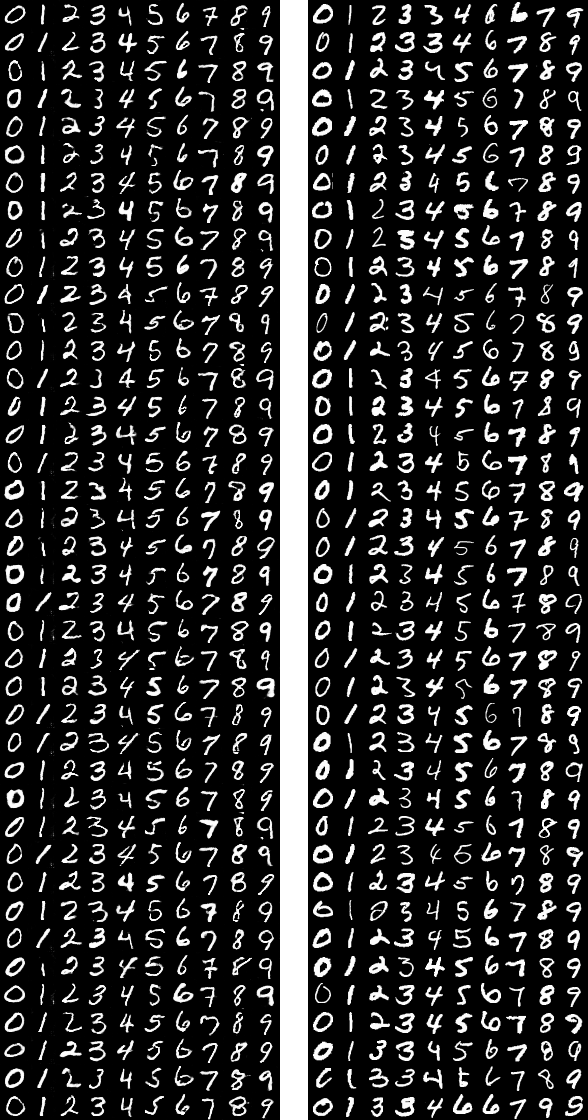 0 1 2 3 4 5 6 7 8 9 0 1 2 3 3 4 6 6 7 9
0 1 2 3 4 5 6 7 8 9 0 1 2 3 3 4 6 7 8 9
0 1 2 3 4 5 6 7 8 9 0 1 2 3 4 5 6 7 8 9
0 1 2 3 4 5 6 7 8 9 0 1 2 3 4 5 6 7 8 9
0 1 2 3 4 5 6 7 8 9 0 1 2 3 4 5 6 7 8 9
0 1 2 3 4 5 6 7 8 9 0 1 2 3 4 5 6 7 8 9
0 1 2 3 4 5 6 7 8 9 0 1 2 3 4 5 6 7 8 9
0 1 2 3 4 5 6 7 8 9 0 1 2 3 4 5 6 7 8 9
0 1 2 3 4 5 6 7 8 9 0 1 2 3 4 5 6 7 8 9
0 1 2 3 4 5 6 7 8 9 0 1 2 3 4 5 6 7 8 9
0 1 2 3 4 5 6 7 8 9 0 1 2 3 4 5 6 7 8 9
0 1 2 3 4 5 6 7 8 9 0 1 2 3 4 5 6 7 8 9
0 1 2 3 4 5 6 7 8 9 0 1 2 3 4 5 6 7 8 9
0 1 2 3 4 5 6 7 8 9 0 1 2 3 4 5 6 7 8 9
0 1 2 3 4 5 6 7 8 9 0 1 2 3 4 5 6 7 8 9
0 1 2 3 4 5 6 7 8 9 0 1 2 3 4 5 6 7 8 9
0 1 2 3 4 5 6 7 8 9 0 1 2 3 4 5 6 7 8 9
0 1 2 3 4 5 6 7 8 9 0 1 2 3 4 5 6 7 8 9
0 1 2 3 4 5 6 7 8 9 0 1 2 3 4 5 6 7 8 9
0 1 2 3 4 5 6 7 8 9 0 1 2 3 4 5 6 7 8 9
0 1 2 3 4 5 6 7 8 9 0 1 2 3 4 5 6 7 8 9
0 1 2 3 4 5 6 7 8 9 0 1 2 3 4 5 6 7 8 9
0 1 2 3 4 5 6 7 8 9 0 1 2 3 4 5 6 7 8 9
0 1 2 3 4 5 6 7 8 9 0 1 2 3 4 5 6 7 8 9
0 1 2 3 4 5 6 7 8 9 0 1 2 3 4 5 6 7 8 9
0 1 2 3 4 5 6 7 8 9 0 1 2 3 4 5 6 7 8 9
0 1 2 3 4 5 6 7 8 9 0 1 2 3 4 5 6 7 8 9
0 1 2 3 4 5 6 7 8 9 0 1 2 3 4 5 6 7 8 9
0 1 2 3 4 5 6 7 8 9 0 1 2 3 4 5 6 7 8 9
0 1 2 3 4 5 6 7 8 9 0 1 2 3 4 5 6 7 8 9
0 1 2 3 4 5 6 7 8 9 0 1 2 3 4 6 6 7 8 9
0 1 2 3 4 5 6 7 8 9 0 1 2 3 4 5 6 7 8 9
0 1 2 3 4 5 6 7 8 9 6 1 0 3 4 5 6 7 8 9
0 1 2 3 4 5 6 7 8 9 0 1 2 3 4 5 6 7 8 9
0 1 2 3 4 5 6 7 8 9 0 1 2 3 4 5 6 7 8 9
0 1 2 3 4 5 6 7 8 9 0 1 2 3 4 5 6 7 8 9
0 1 2 3 4 5 6 7 8 9 0 1 2 3 4 5 6 7 8 9
0 1 2 3 4 5 6 7 8 9 0 1 3 3 4 5 6 7 8 0
0 1 2 3 4 5 6 7 8 9 1 3 3 4 6 7 8 9
0 1 2 3 4 5 6 7 8 9 0 1 3 8 4 6 6 7 9 5